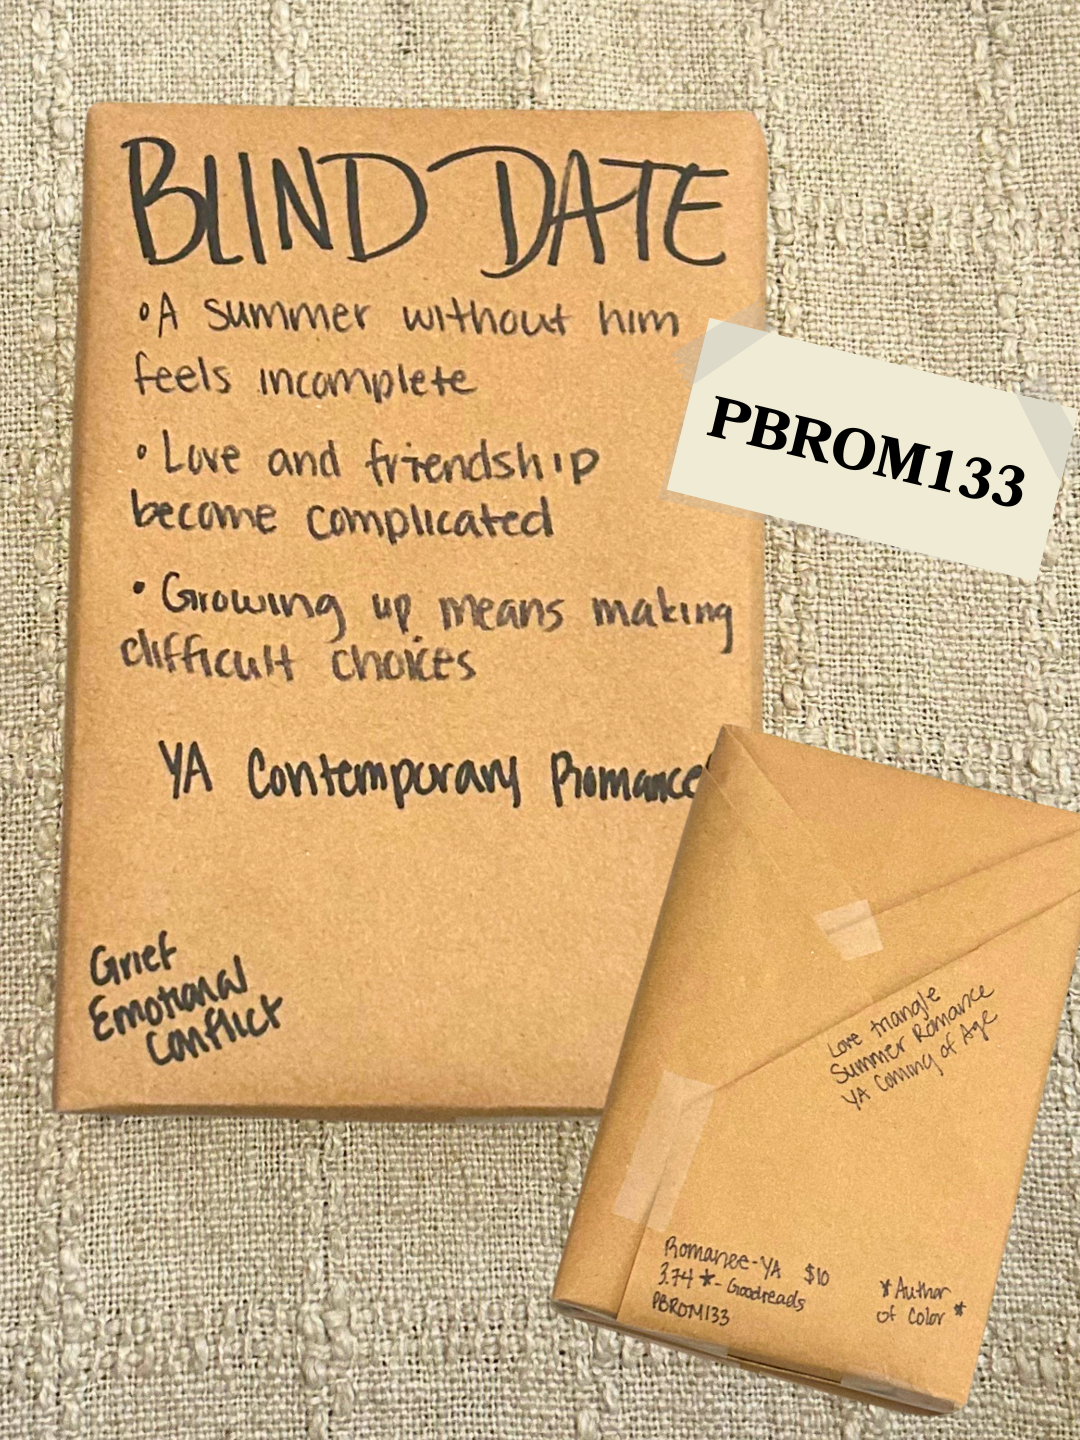 BLIND DATE
• A summer without him
feels incomplete
• Love and friendship
become complicated
• Growing up means making
difficult choices
YA Contemporary Romance
Grief
Emotional
Conflict
PBROM133
Love triangle
Summer Romance
YA Coming of Age
Romance-YA $10
3.74 ★- Goodreads
PBROM133
*Author
of Color*